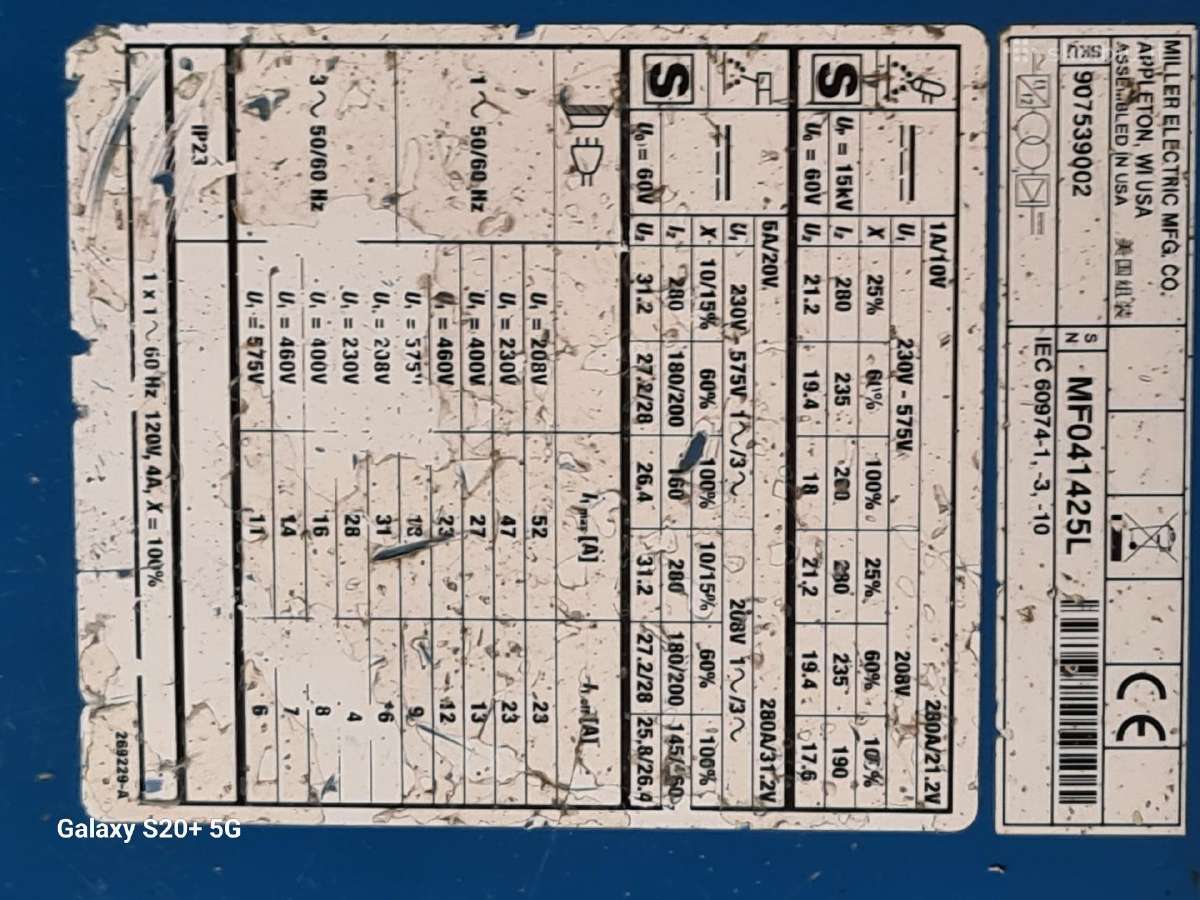 MILLER ELECTRIC MFG. CO.
APPLETON, WI USA
ASSEMBLED IN USA 美国组装
907539002
S N MF041425L
IEC 60974-1, -3, -10
CE
1A/10V 280A/21.2V
U₁ 230V - 575V 208V
X 25% 60% 100% 25% 60% 100%
Uₚ = 15kV I₂ 280 235 200 280 235 190
S U₀ = 60V U₂ 21.2 19.4 18 21.2 19.4 17.6
5A/20V 280A/31.2V
U₁ 230V - 575V 1~/3~ 208V 1~/3~
X 10/15% 60% 100% 10/15% 60% 100%
I₂ 280 180/200 160 280 180/200
S U₀ = 60V U₂ 31.2 27.2/28 26.4 31.2 27.2/28 25.8/26.4
I₁ max [A] I₁ eff [A]
1 ~ 50/60 Hz
U₁ = 208V 52 23
U₁ = 230V 47 23
U₁ = 400V 27 13
U₁ = 460V 23 12
U₁ = 575V 18 9
3 ~ 50/60 Hz
U₁ = 208V 31 16
U₁ = 230V 28 4
U₁ = 400V 16 8
U₁ = 460V 14 7
U₁ = 575V 11 6
IP23
1 x 1 ~ 60 Hz 120V, 4A, X = 100%
269229-A
Galaxy S20+ 5G